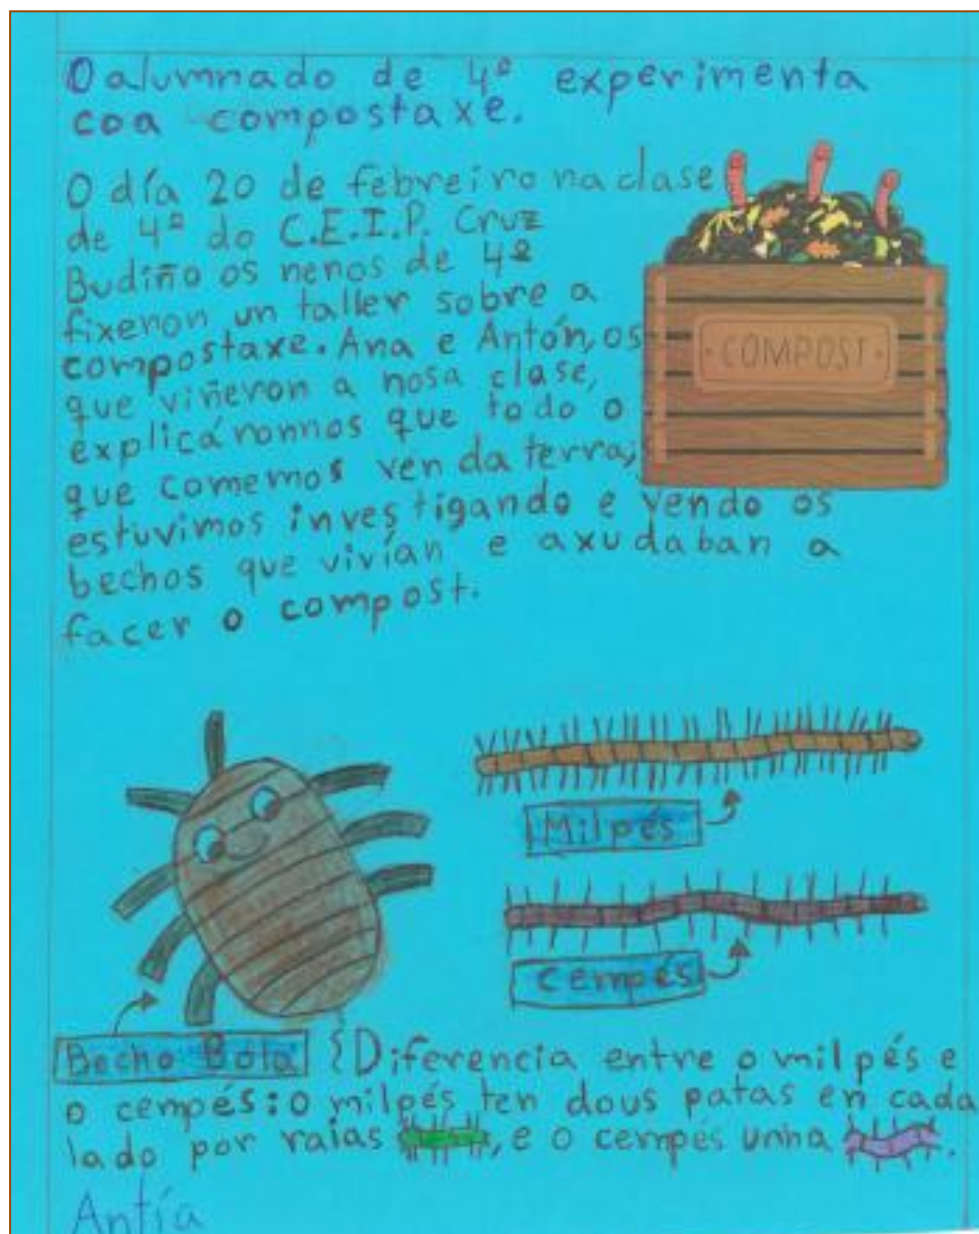 O alumnado de 4º experimenta
coa compostaxe.
O día 20 de febreiro na clase
de 4º do C.E.I.P. Cruz
Budiño os nenos de 4º
fixeron un taller sobre a
compostaxe. Ana e Antón, os
que viñeron a nosa clase,
explicáronnos que todo o
que comemos ven da terra;
estuvimos investigando e vendo os
bechos que vivían e axudaban a
facer o compost.
COMPOST
Milpés
Cempés
Becho Bola
Diferencia entre o milpés e
o cempés: o milpés ten dous patas en cada
lado por raias, e o cempés unha.
Antía